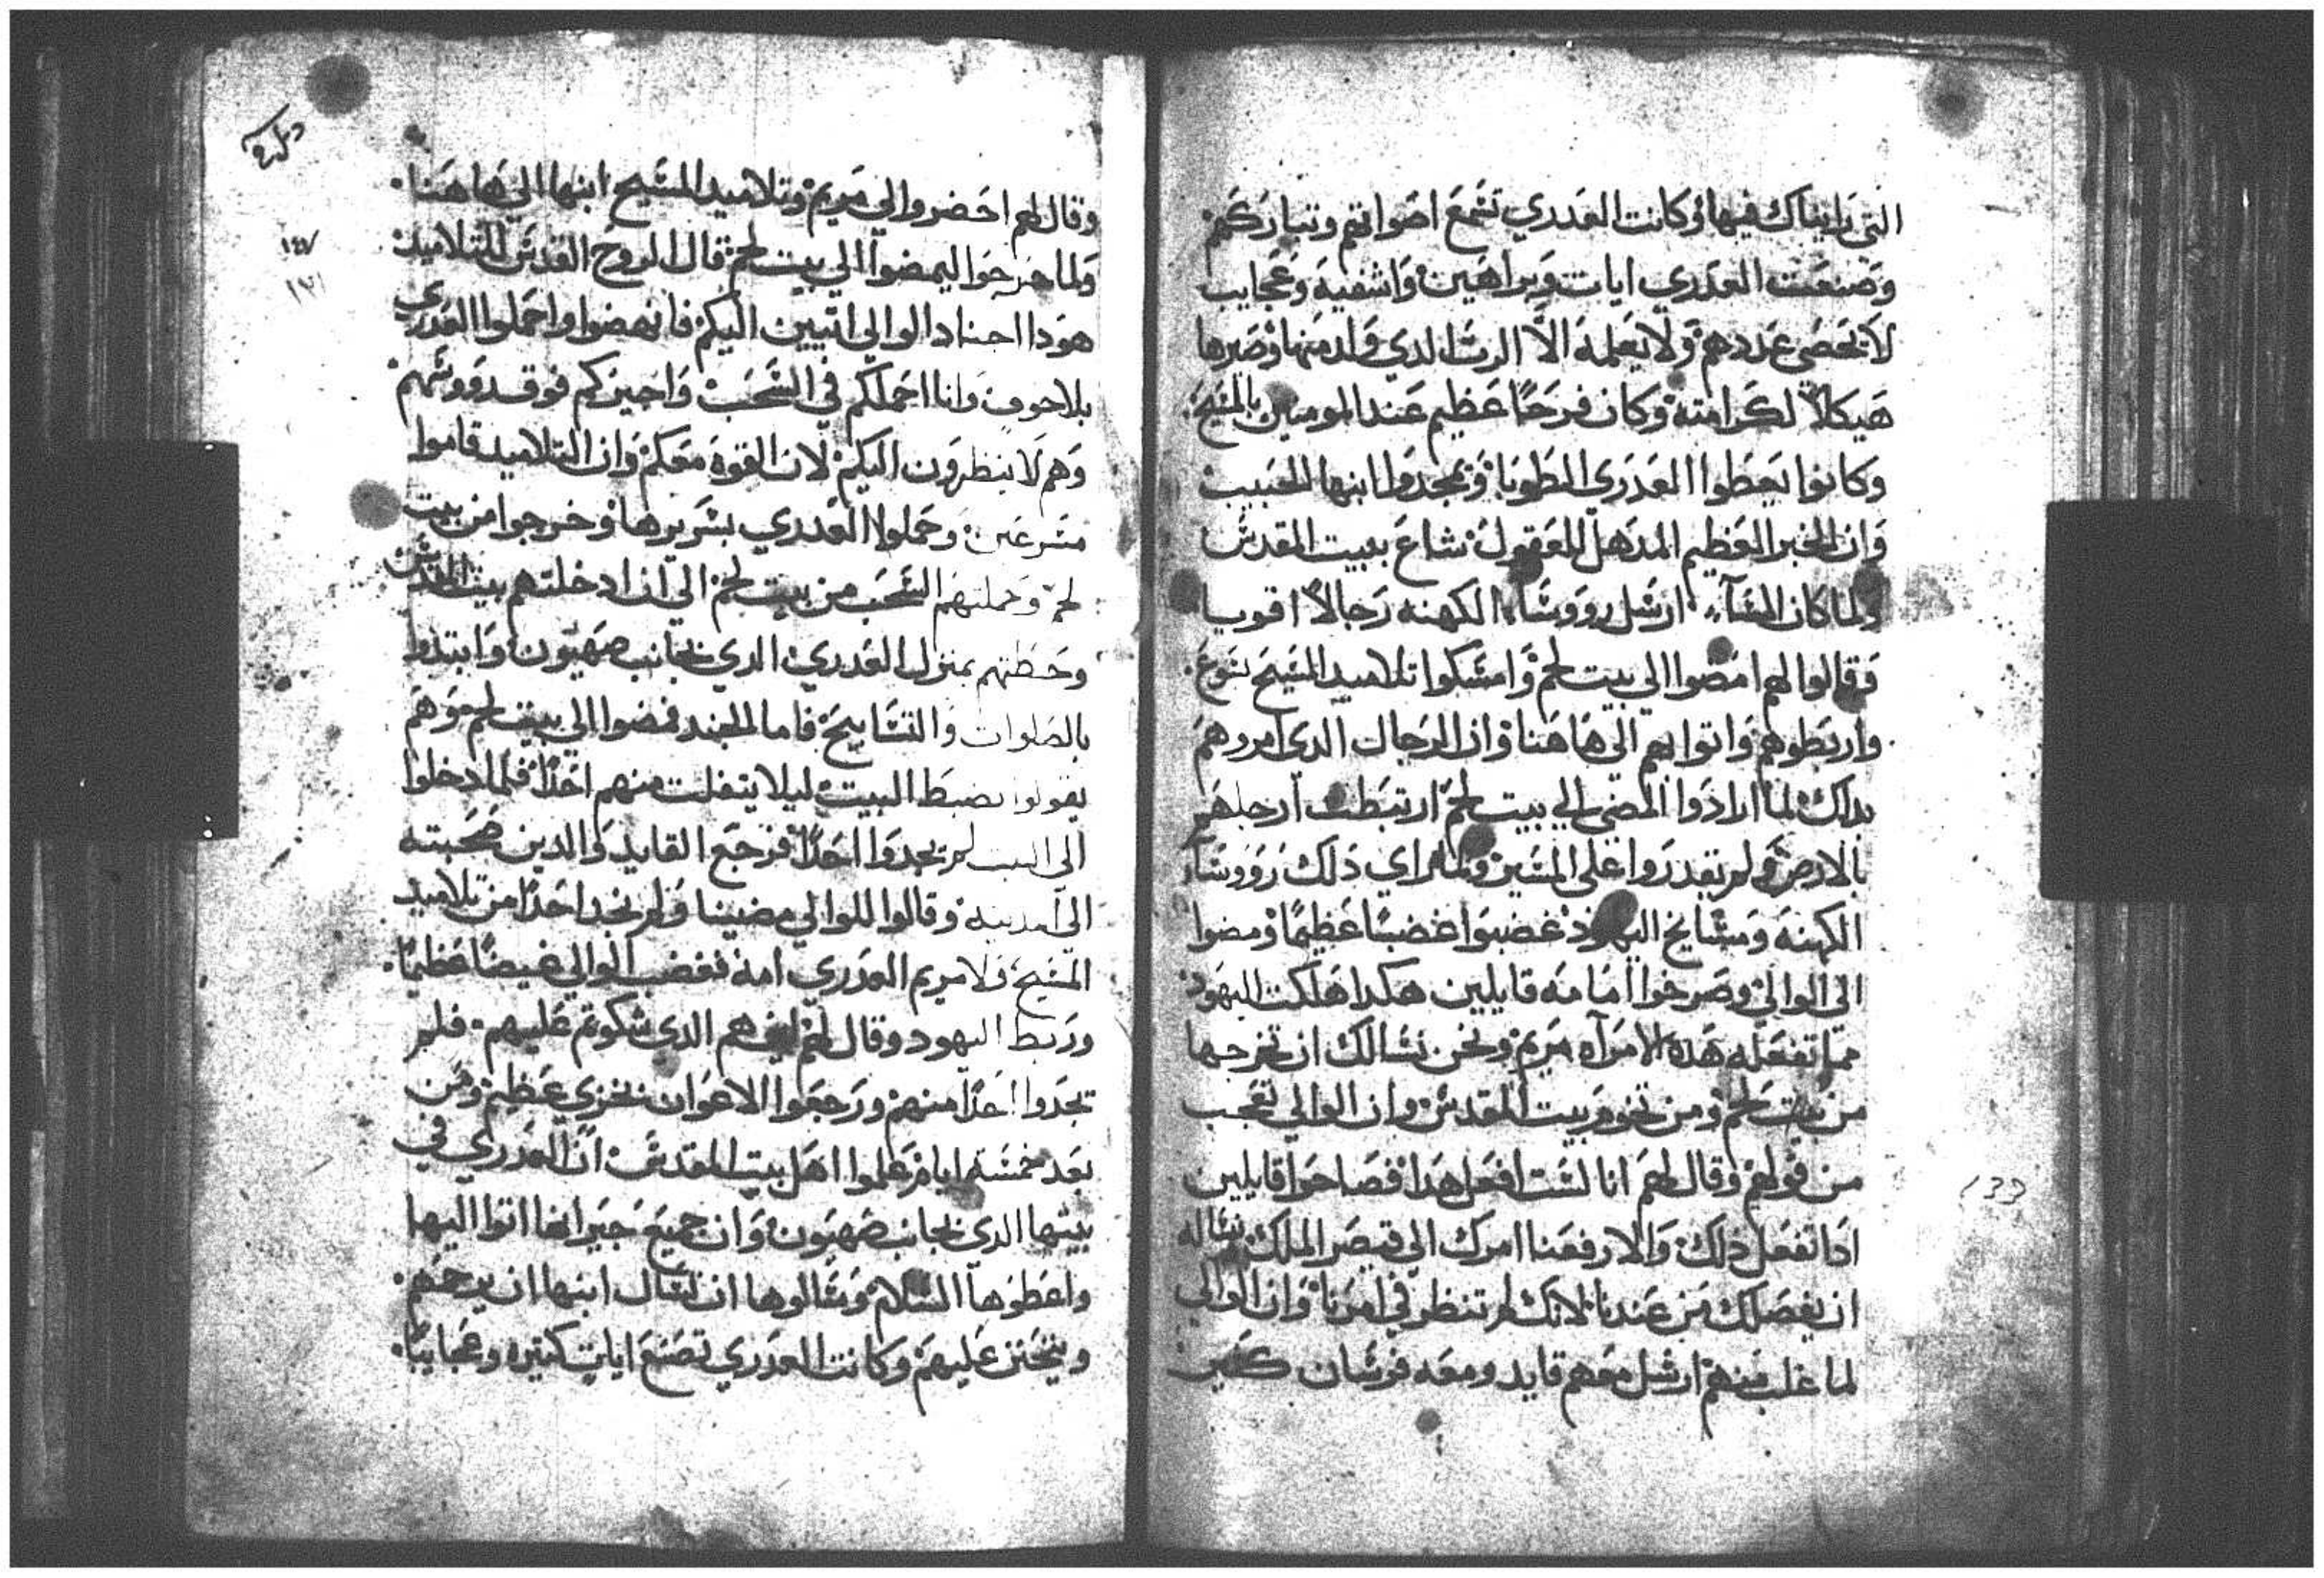 التي رايناك فيها وكانت العدري تسمع اصواتهم وتباركهم
وصنعت العدري ايات وبراهين واشفيه وعجايب
لا تحصي عددهم ولا يعلمه الا الرب الدي ولد منها وصيرها
هيكلا لكرامته وكان فرحا عظيم عند المومنين بالمسيح
وكانوا يعطوا العدري الطوبا ويمجدوا ابنها الحبيب
وان الخبر العظيم المدهل للعقول شاع ببيت المقدس
ولما كان المساء ارسل رووساء الكهنه رجالا اقويا
وقالوا لهم امضوا الي بيت لحم وامسكوا تلاميد المسيح يسوع
واربطوهم واتوا بهم الي هاهنا وان الرجال الدي امروهم
بداك لما ارادوا المضي الي بيت لحم ارتبطت ارجلهم
بالارض ولم يقدروا علي المسير ولما راي دلك رووسا
الكهنه ومشايخ اليهود غضبوا غضبا عظيما ومضوا
الي الوالي وصرخوا امامه قايلين هكدا هلكت اليهود
مما تفعله هده الامراه مريم ونحن نسالك ان تخرجها
من بيت لحم ومن تخوم بيت المقدس وان الوالي تعجب
من قولهم وقال لهم انا لست افعل هدا فصاحوا قايلين
ادا تفعل دلك والا رفعنا امرك الي قيصر الملك نساله
ان يفصلك من عندنا لانك لم تنظر في امرنا وان الوالي
لما غلب منهم ارسل معهم قايد ومعه فرسان كثير
١٤٧
وقال لهم احضروا لي مريم وتلاميد المسيح ابنها الي هاهنا
ولما خرجوا ليمضوا الي بيت لحم قال الروح القدس للتلاميد
هودا اجناد الوالي اتيين اليكم فانهضوا واحملوا العدري
بلا خوف وانا احملكم في السحب واجيزكم فوق رووسهم
وهم لا ينظرون اليكم لان القوه معكم وان التلاميد قاموا
مسرعين وحملوا العدري بسريرها وخرجوا من بيت
لحم وحملتهم السحب من بيت لحم الي ان ادخلتهم بيت المقدس
وحطتهم بمنزل العدري الدي بجانب صهيون وابتدوا
بالصلوات والتسابيح فاما الجند فمضوا الي بيت لحم وهم
يقولوا نضبط البيت ليلا يتفلت منهم احدا فلما دخلوا
الي البيت لم يجدوا احدا فرجع القايد والدين صحبته
الي المدينه وقالوا للوالي مضينا ولم نجد احدا من تلاميد
المسيح ولا مريم العدري امه فغضب الوالي غيضا عظيما
وربط اليهود وقال لهم اين هم الدي شكوتم عليهم فلم
تجدوا احدا منهم ورجعوا الاعوان بخزي عظيم ومن
بعد خمسة ايام علموا اهل بيت المقدس ان العدري في
بيتها الدي بجانب صهيون وان جميع جيرانها اتوا اليها
واعطوها السلام وسالوها ان تسال ابنها ان يرحمهم
ويتحنن عليهم وكانت العدري تصنع ايات كتيره وعجايبا